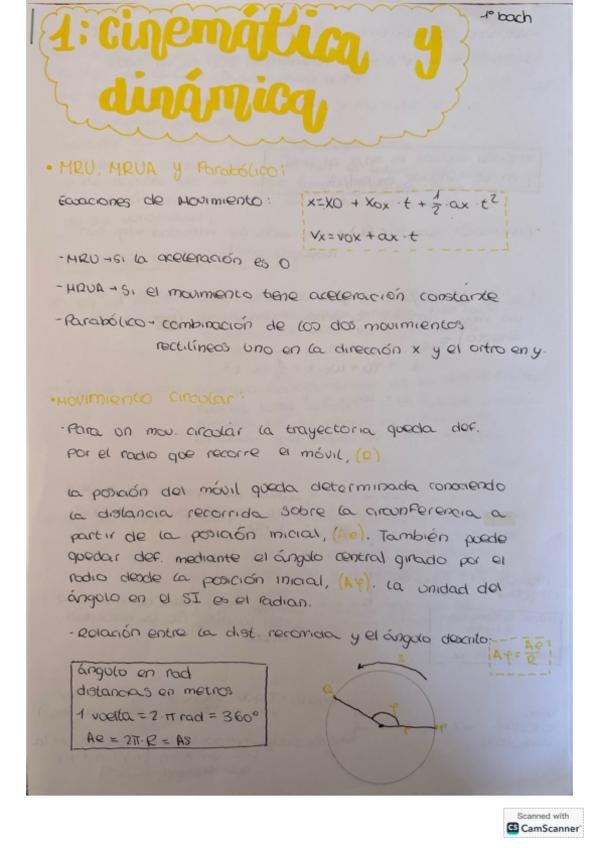 1º bach
1: cinemática y
dinámica
• MRU, MRUA y Parabólico:
Ecuaciones de Movimiento:
x=x0 + x0x · t + 1/2 · ax · t²
Vx = v0x + ax · t
- MRU → Si la aceleración es 0
- MRUA → Si el movimiento tiene aceleración constante
- Parabólico → combinación de los dos movimientos
rectilíneos uno en la dirección x y el ortro en y.
• Movimiento Circular:
- Para un mov. circular la trayectoria queda def.
por el radio que recorre el móvil, (R)
La posición del móvil queda determinada conociendo
la distancia recorrida sobre la circunferencia a
partir de la posición inicial, (Δe). También puede
quedar def. mediante el ángulo central girado por el
radio desde la posición inicial, (Δφ). La unidad del
ángulo en el SI es el radian.
- Relación entre la dist. recorrida y el ángulo descrito:
Δφ = Δe/R
ángulo en rad
distancias en metros
1 vuelta = 2·π rad = 360º
Δe = 2π·R = Δs
s
Q
φ
r
P
Scanned with
CS CamScanner